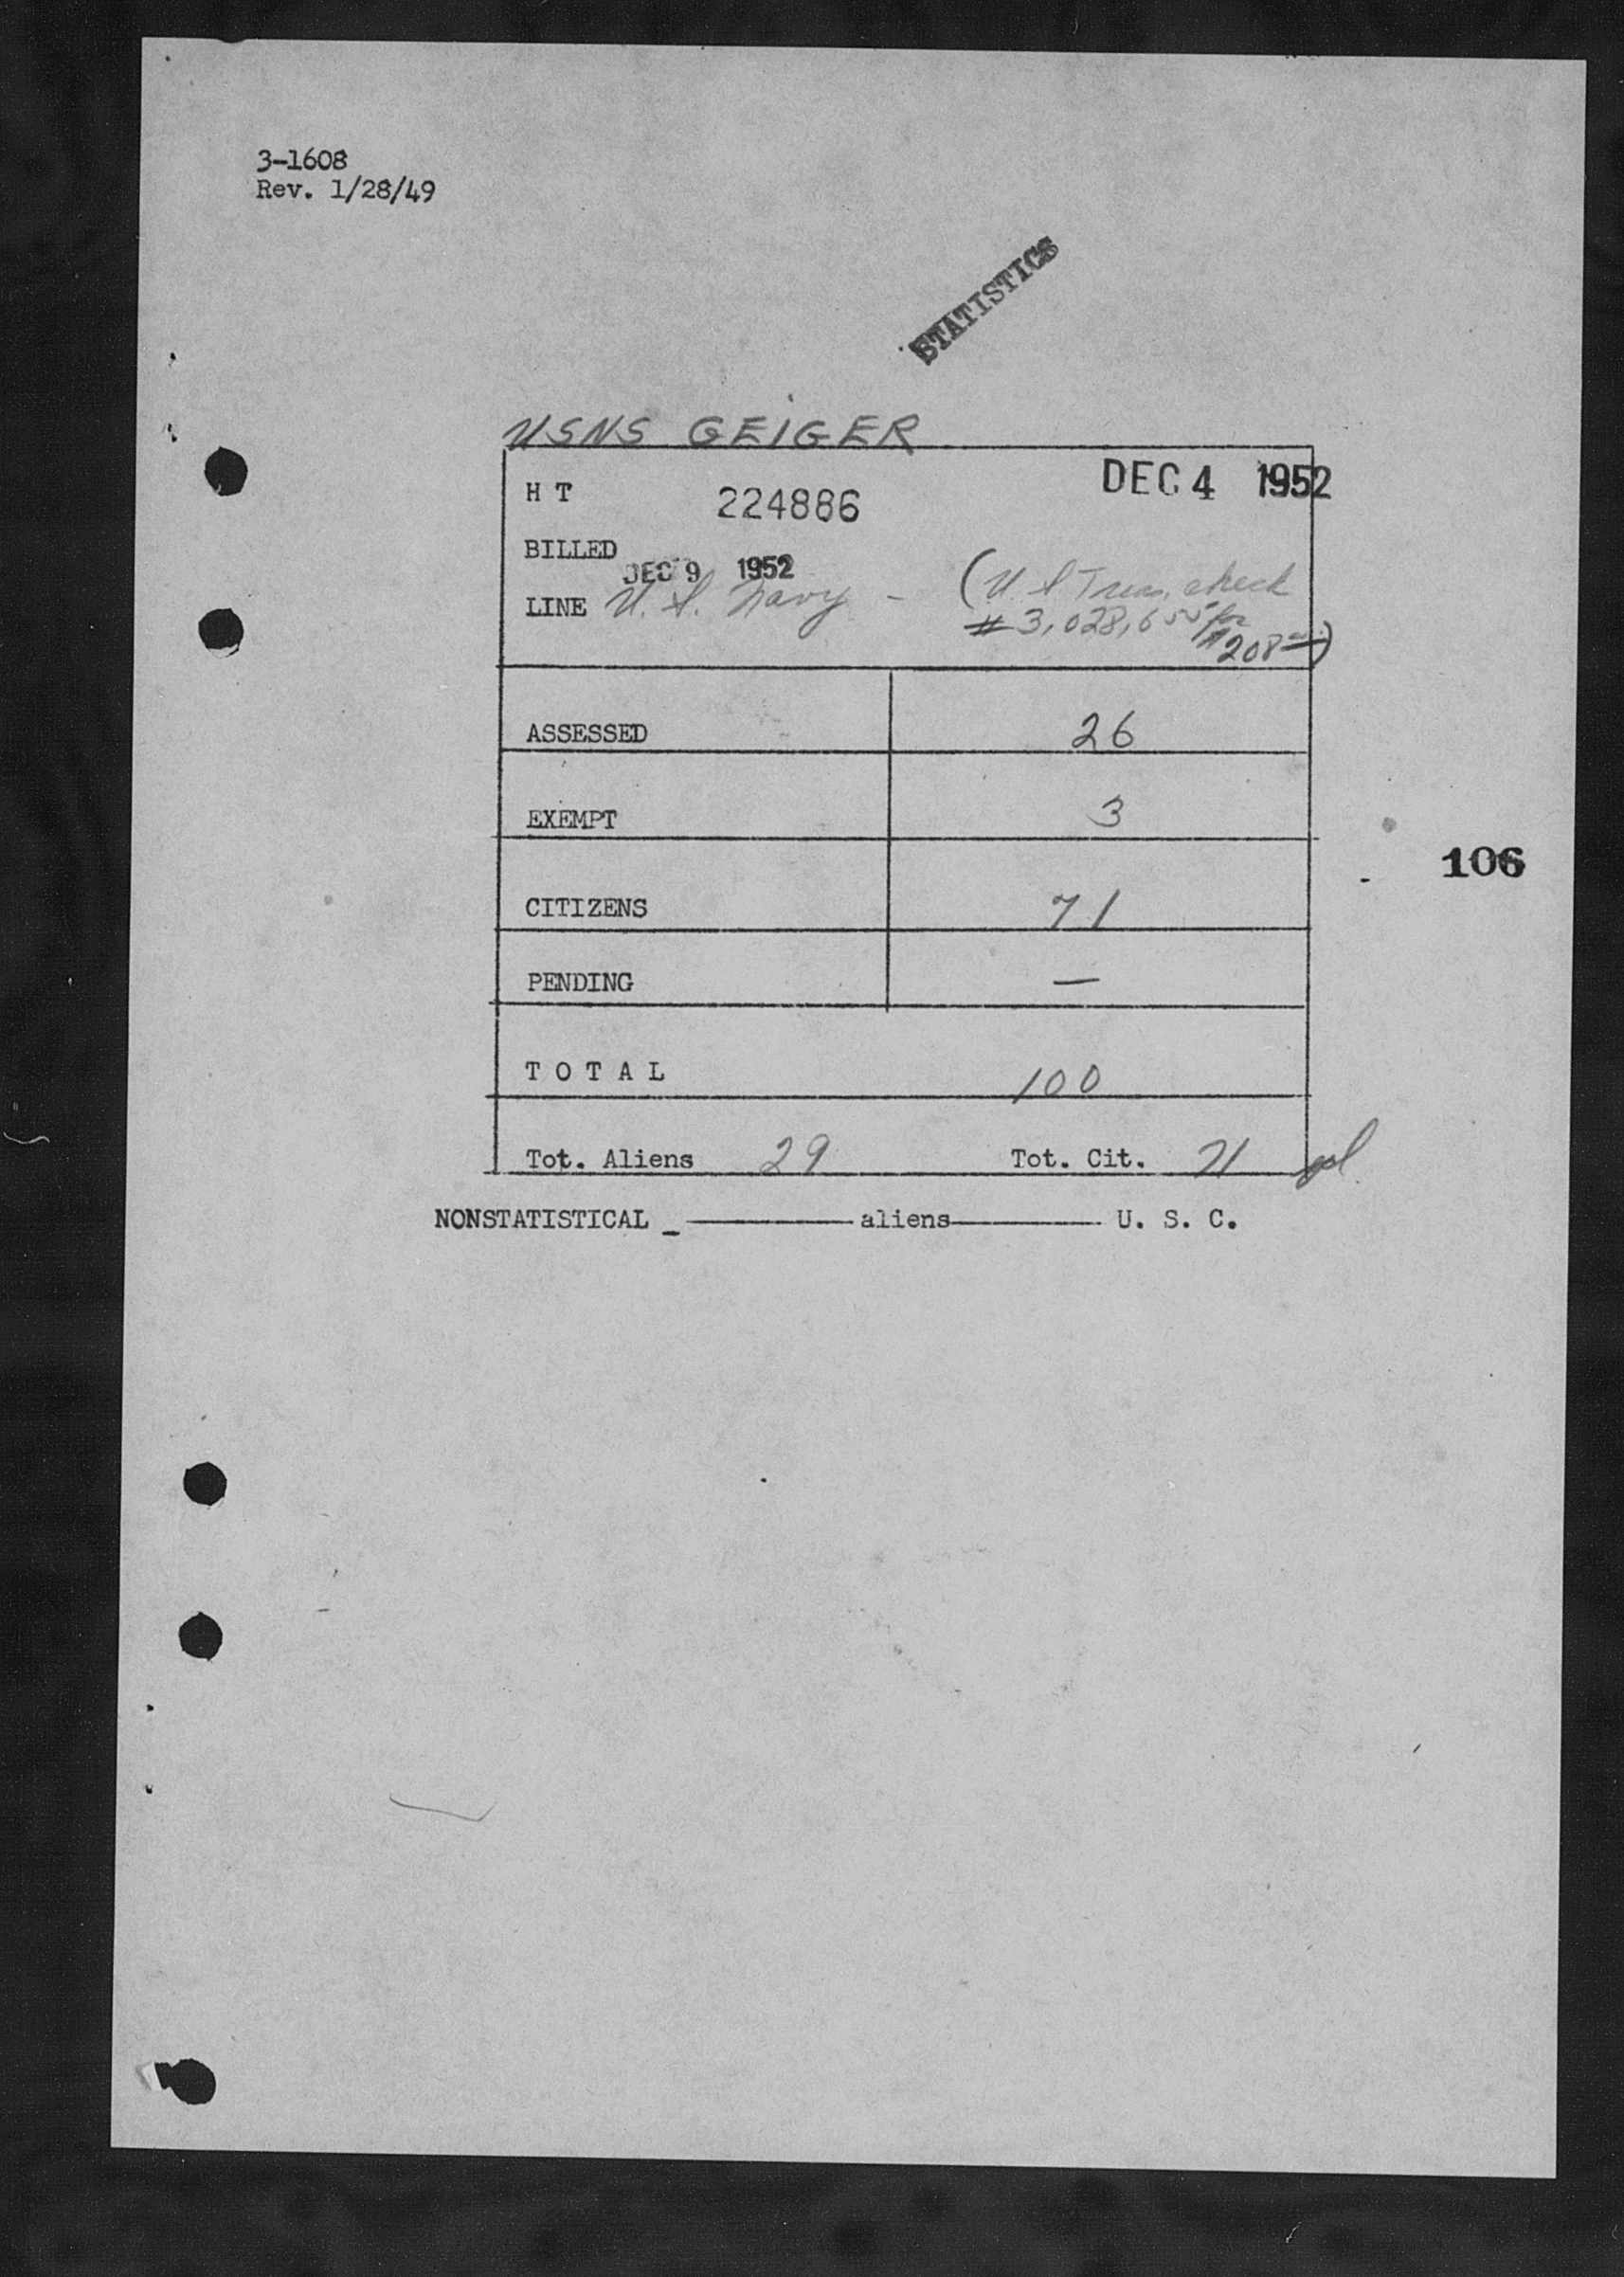 3-1608
Rev. 1/28/49
STATISTICS
USNS GEIGER
H T 224886 DEC 4 1952
BILLED
DEC 9 1952
LINE U. S. Navy - (U. S Treas. check
# 3,028,655 for
$208.00)
ASSESSED 26
EXEMPT 3
106
CITIZENS 71
PENDING —
T O T A L 100
Tot. Aliens 29 Tot. Cit. 71
NONSTATISTICAL _ ——— aliens ——— U. S. C.